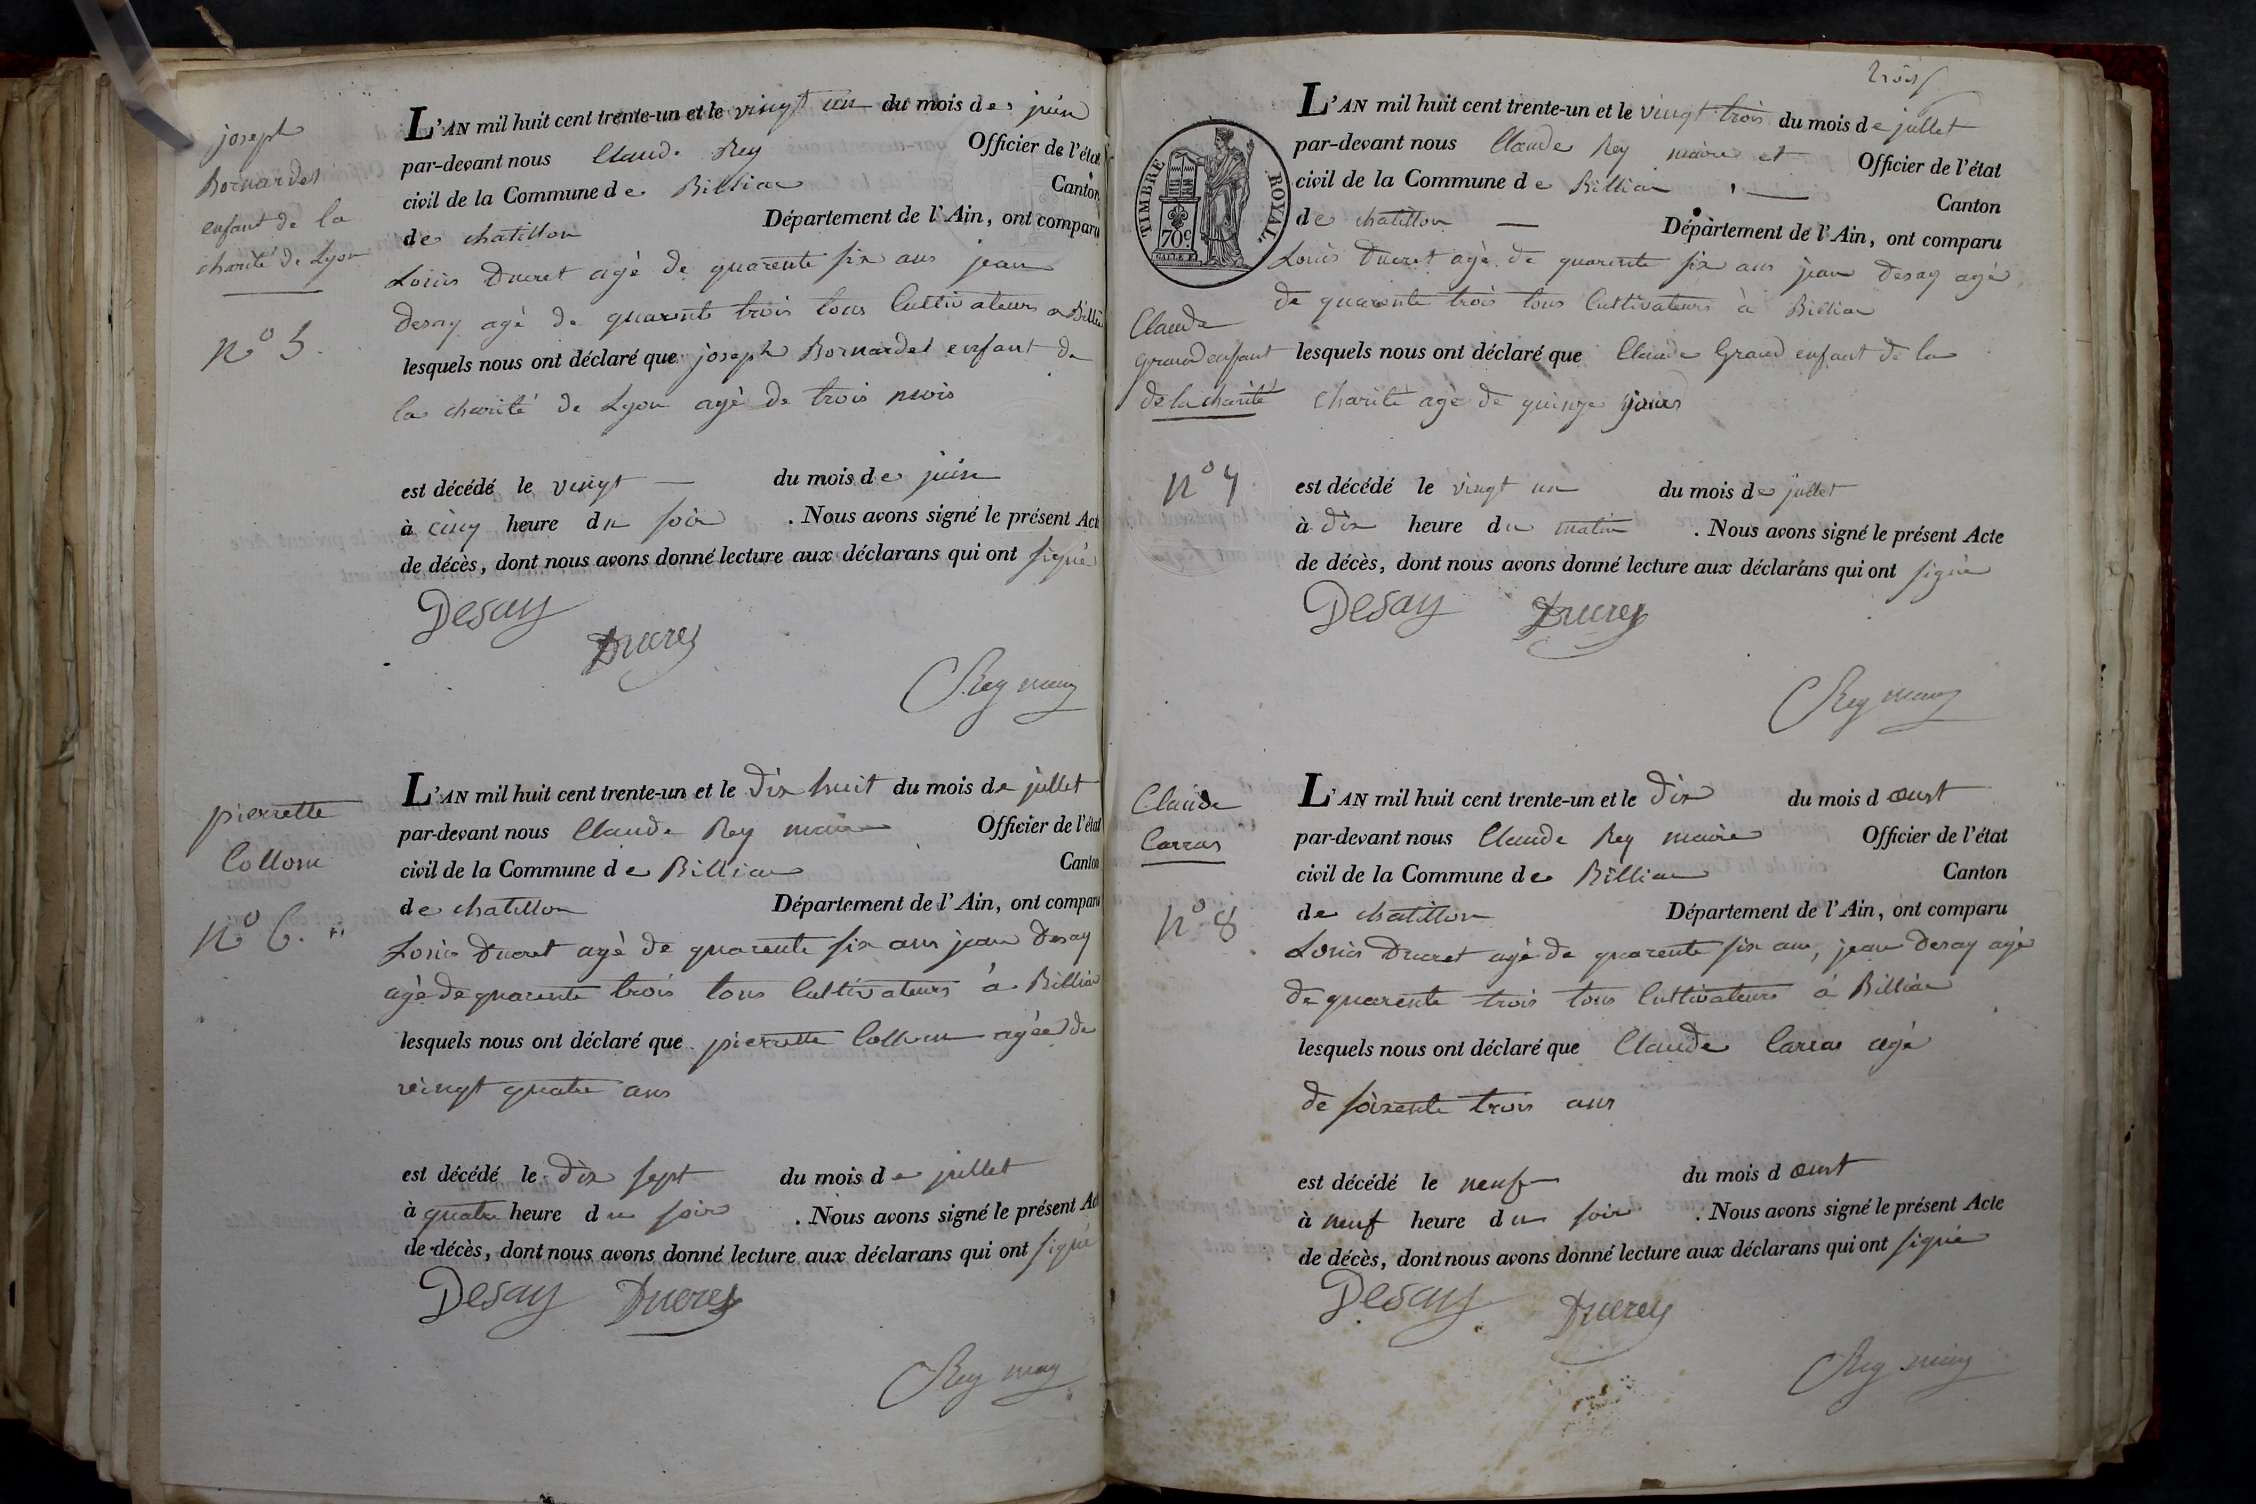 joseph
Bornardel
enfant de la
charité de Lyon
n° 5.
L'AN mil huit cent trente-un et le vingt un du mois de juin
par-devant nous Claude Rey Officier de l'état
civil de la Commune de Billiac Canton
de chatillon Département de l'Ain, ont comparu
Louis Ducret agé de quarente six ans jean
Desay agé de quarente trois tous Cultivateurs a Billia
lesquels nous ont déclaré que joseph Bornardel enfant de
la charité de Lyon agé de trois mois
est décédé le vingt — du mois de juin
à cinq heure du soir . Nous avons signé le présent Acte
de décès, dont nous avons donné lecture aux déclarans qui ont signé
Desay
Ducret
CRey maire
pierrette
Collom
n° 6.
L'AN mil huit cent trente-un et le dix huit du mois de jullet
par-devant nous Claude Rey maire Officier de l'état
civil de la Commune de Billiac Canton
de chatillon Département de l'Ain, ont comparu
Louis Ducret agé de quarente six ans jean Desay
agé de quarente trois tous Cultivateurs à Billia
lesquels nous ont déclaré que pierrette Collom agée de
vingt quatre ans
est décédé le dix sept du mois de jullet
à quatre heure du soir . Nous avons signé le présent Acte
de décès, dont nous avons donné lecture aux déclarans qui ont signé
Desay Ducret
CRey maire
trois
TIMBRE ROYAL.
70c
L'AN mil huit cent trente-un et le vingt trois du mois de jullet
par-devant nous Claude Rey maire et Officier de l'état
civil de la Commune de Billiac — Canton
de chatillon — Département de l'Ain, ont comparu
Louis Ducret agé de quarente six ans jean Desay agé
de quarente trois tous Cultivateurs à Billiac
Claude
Grand enfant
de la charité
n° 7
lesquels nous ont déclaré que Claude Grand enfant de la
charité agé de quinze jours
est décédé le vingt un du mois de jullet
à dix heure du matin . Nous avons signé le présent Acte
de décès, dont nous avons donné lecture aux déclarans qui ont signé
Desay Ducret
CRey maire
Claude
Carras
n° 8
L'AN mil huit cent trente-un et le dix du mois d oust
par-devant nous Claude Rey maire Officier de l'état
civil de la Commune de Billiac Canton
de chatillon Département de l'Ain, ont comparu
Louis Ducret agé de quarente six ans, jean Desay agé
de quarente trois tous Cultivateurs à Billiac
lesquels nous ont déclaré que Claude Carras agé
de soixente trois ans
est décédé le neuf du mois d oust
à neuf heure du soir . Nous avons signé le présent Acte
de décès, dont nous avons donné lecture aux déclarans qui ont signé
Desay
Ducret
CRey maire